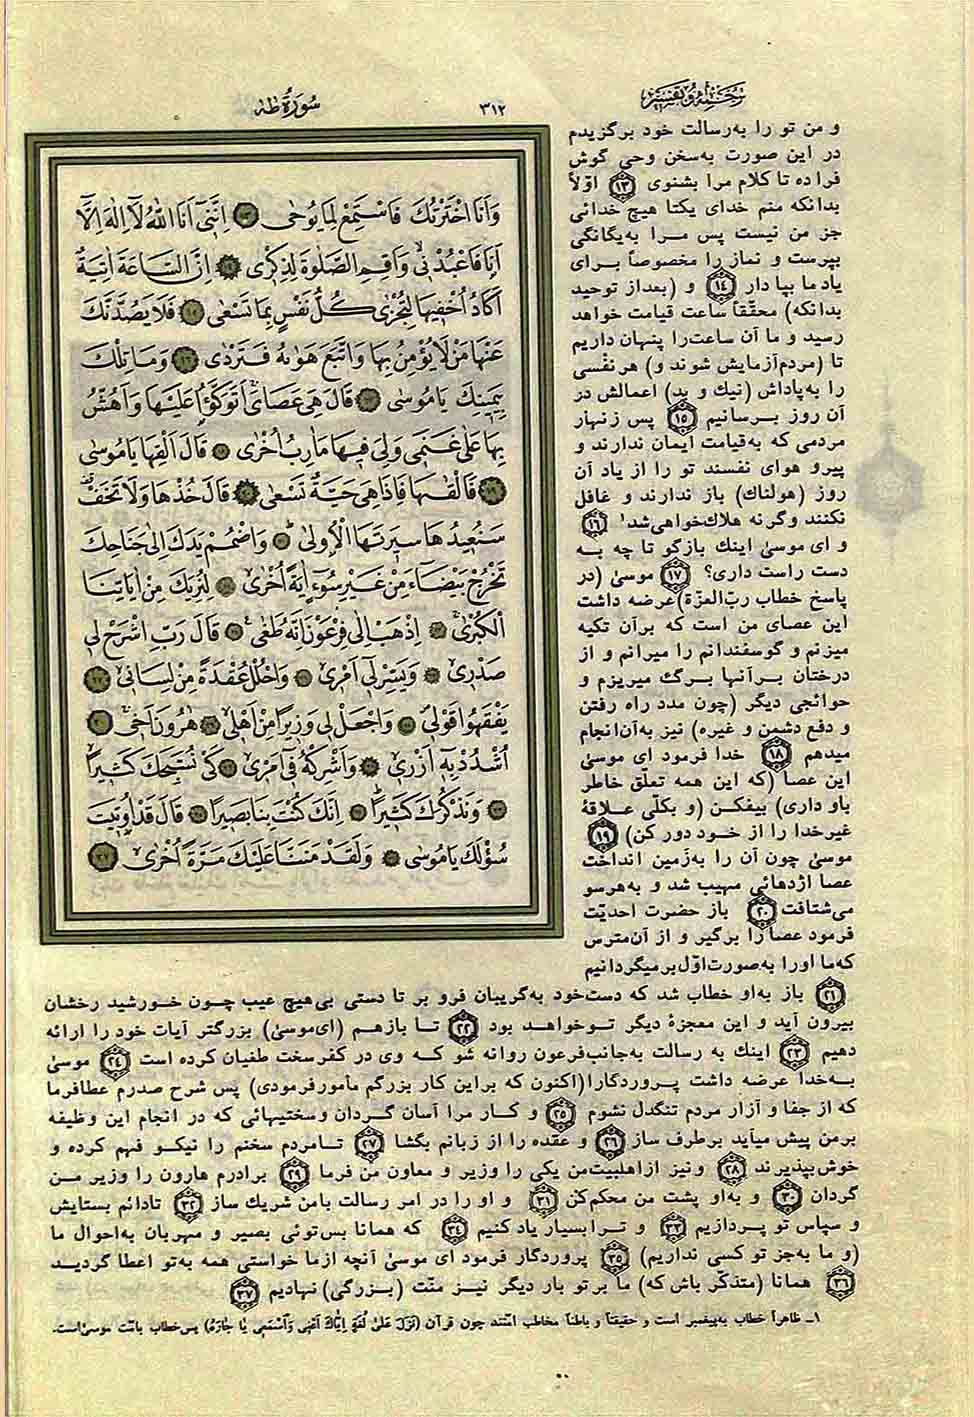 ترجمه و تفسیر
۳۱۲
سُورَةُ طٰهٰ
وَاَنَا اخْتَرْتُكَ فَاسْتَمِعْ لِمَا يُوحٰى ۱۳ اِنَّنِىٓ اَنَا اللّٰهُ لَآ اِلٰهَ اِلَّآ
اَنَا فَاعْبُدْنِى وَاَقِمِ الصَّلٰوةَ لِذِكْرِى ۱۴ اِنَّ السَّاعَةَ اٰتِيَةٌ
اَكَادُ اُخْفِيهَا لِتُجْزٰى كُلُّ نَفْسٍ بِمَا تَسْعٰى ۱۵ فَلَا يَصُدَّنَّكَ
عَنْهَا مَنْ لَا يُؤْمِنُ بِهَا وَاتَّبَعَ هَوٰيهُ فَتَرْدٰى ۱۶ وَمَا تِلْكَ
بِيَمِينِكَ يَا مُوسٰى ۱۷ قَالَ هِىَ عَصَاىَ اَتَوَكَّؤُا عَلَيْهَا وَاَهُشُّ
بِهَا عَلٰى غَنَمِى وَلِىَ فِيهَا مَاٰرِبُ اُخْرٰى ۱۸ قَالَ اَلْقِهَا يَا مُوسٰى
۱۹ فَاَلْقٰيهَا فَاِذَا هِىَ حَيَّةٌ تَسْعٰى ۲۰ قَالَ خُذْهَا وَلَا تَخَفْ
سَنُعِيدُهَا سِيرَتَهَا الْاُولٰى ۲۱ وَاضْمُمْ يَدَكَ اِلٰى جَنَاحِكَ
تَخْرُجْ بَيْضَآءَ مِنْ غَيْرِ سُوٓءٍ اٰيَةً اُخْرٰى ۲۲ لِنُرِيَكَ مِنْ اٰيَاتِنَا
الْكُبْرٰى ۲۳ اِذْهَبْ اِلٰى فِرْعَوْنَ اِنَّهُ طَغٰى ۲۴ قَالَ رَبِّ اشْرَحْ لِى
صَدْرِى ۲۵ وَيَسِّرْ لِىٓ اَمْرِى ۲۶ وَاحْلُلْ عُقْدَةً مِنْ لِسَانِى ۲۷
يَفْقَهُوا قَوْلِى ۲۸ وَاجْعَلْ لِى وَزِيرًا مِنْ اَهْلِى ۲۹ هٰرُونَ اَخِى ۳۰
اُشْدُدْ بِهِٓ اَزْرِى ۳۱ وَاَشْرِكْهُ فِىٓ اَمْرِى ۳۲ كَىْ نُسَبِّحَكَ كَثِيرًا
۳۳ وَنَذْكُرَكَ كَثِيرًا ۳۴ اِنَّكَ كُنْتَ بِنَا بَصِيرًا ۳۵ قَالَ قَدْ اُوتِيتَ
سُؤْلَكَ يَا مُوسٰى ۳۶ وَلَقَدْ مَنَنَّا عَلَيْكَ مَرَّةً اُخْرٰى ۳۷
و من تو را به‌رسالت خود برگزیدم
در این صورت به‌سخن وحی گوش
فرا ده تا کلام مرا بشنوی ۱۳ اوّلاً
بدانکه منم خدای یکتا هیچ خدائی
جز من نیست پس مرا به‌یگانگی
بپرست و نماز را مخصوصاً برای
یاد ما بپا دار ۱۴ و (بعداز توحید
بدانکه) محقّقاً ساعت قیامت خواهد
رسید و ما آن ساعت‌را پنهان داریم
تا (مردم‌آزمایش شوند و) هرنفْسی
را به‌پاداش (نیک و بد) اعمالش در
آن روز برسانیم ۱۵ پس زنهار
مردمی که به‌قیامت ایمان ندارند و
پیرو هوای نفسند تو را از یاد آن
روز (هولناک) باز ندارند و غافل
نکنند وگرنه هلاک‌خواهی‌شد۱ ۱۶
و ای موسیٰ اینک بازگو تا چه به
دست راست داری؟ ۱۷ موسیٰ (در
پاسخ خطاب ربّ‌العزّة)عرضه داشت
این عصای من است که برآن تکیه
میزنم و گوسفندانم را میرانم و از
درختان برآنها برگ میریزم و
حوائجی دیگر (چون مدد راه رفتن
و دفع دشمن و غیره) نیز به‌آن‌انجام
میدهم ۱۸ خدا فرمود ای موسیٰ
این عصا (که این همه تعلّق خاطر
باو داری) بیفکن (و بکلّی علاقهٔ
غیرخدا را از خود دور کن) ۱۹
موسیٰ چون آن را به‌زمین انداخت
عصا اژدهائی مهیب شد و به‌هرسو
می‌شتافت ۲۰ باز حضرت احدیّت
فرمود عصا را برگیر و از آن‌مترس
که‌ما اورا به‌صورت‌اوّل‌برمیگردانیم
۲۱ باز به‌او خطاب شد که دست‌خود به‌گریبان فرو بر تا دستی بی‌هیچ عیب چون خورشید رخشان
بیرون آید و این معجزهٔ دیگر توخواهد بود ۲۲ تا بازهم (ای‌موسیٰ) بزرگتر آیات خود را ارائه
دهیم ۲۳ اینک به رسالت به‌جانب‌فرعون روانه شو که وی در کفرسخت طغیان کرده است ۲۴ موسیٰ
به‌خدا عرضه داشت پروردگارا(اکنون که براین کار بزرگم مأمورفرمودی) پس شرح صدرم عطافرما
که از جفا و آزار مردم تنگدل نشوم ۲۵ و کار مرا آسان گردان وسختیهائی که در انجام این وظیفه
برمن پیش میآید برطرف ساز ۲۶ و عقده را از زبانم بگشا ۲۷ تامردم سخنم را نیکو فهم کرده و
خوش‌بپذیرند ۲۸ ونیز ازاهلبیت‌من یکی را وزیر و معاون من فرما ۲۹ برادرم هارون را وزیر من
گردان ۳۰ و به‌او پشت من محکم‌کن ۳۱ و او را در امر رسالت بامن شریک ساز ۳۲ تادائم بستایش
و سپاس تو پردازیم ۳۳ و ترابسیار یادکنیم ۳۴ که همانا بس‌توئی بصیر و مهربان به‌احوال ما
(و ما به‌جز تو کسی نداریم) ۳۵ پروردگار فرمود ای موسیٰ آنچه ازما خواستی همه به‌تو اعطا گردید
۳۶ همانا (متذکّر باش که) ما برتو بار دیگر نیز منّت (بزرگی) نهادیم ۳۷
۱ـ ظاهراً خطاب به‌پیغمبر است و حقیقتاً و باطناً مخاطب امّتند چون قرآن (نَزَلَ عَلیٰ لُغَةِ اِیّاكَ اَعْنِی وَاَسْمَعِی یا جارَه) پس‌خطاب باامّت موسیٰ‌است.